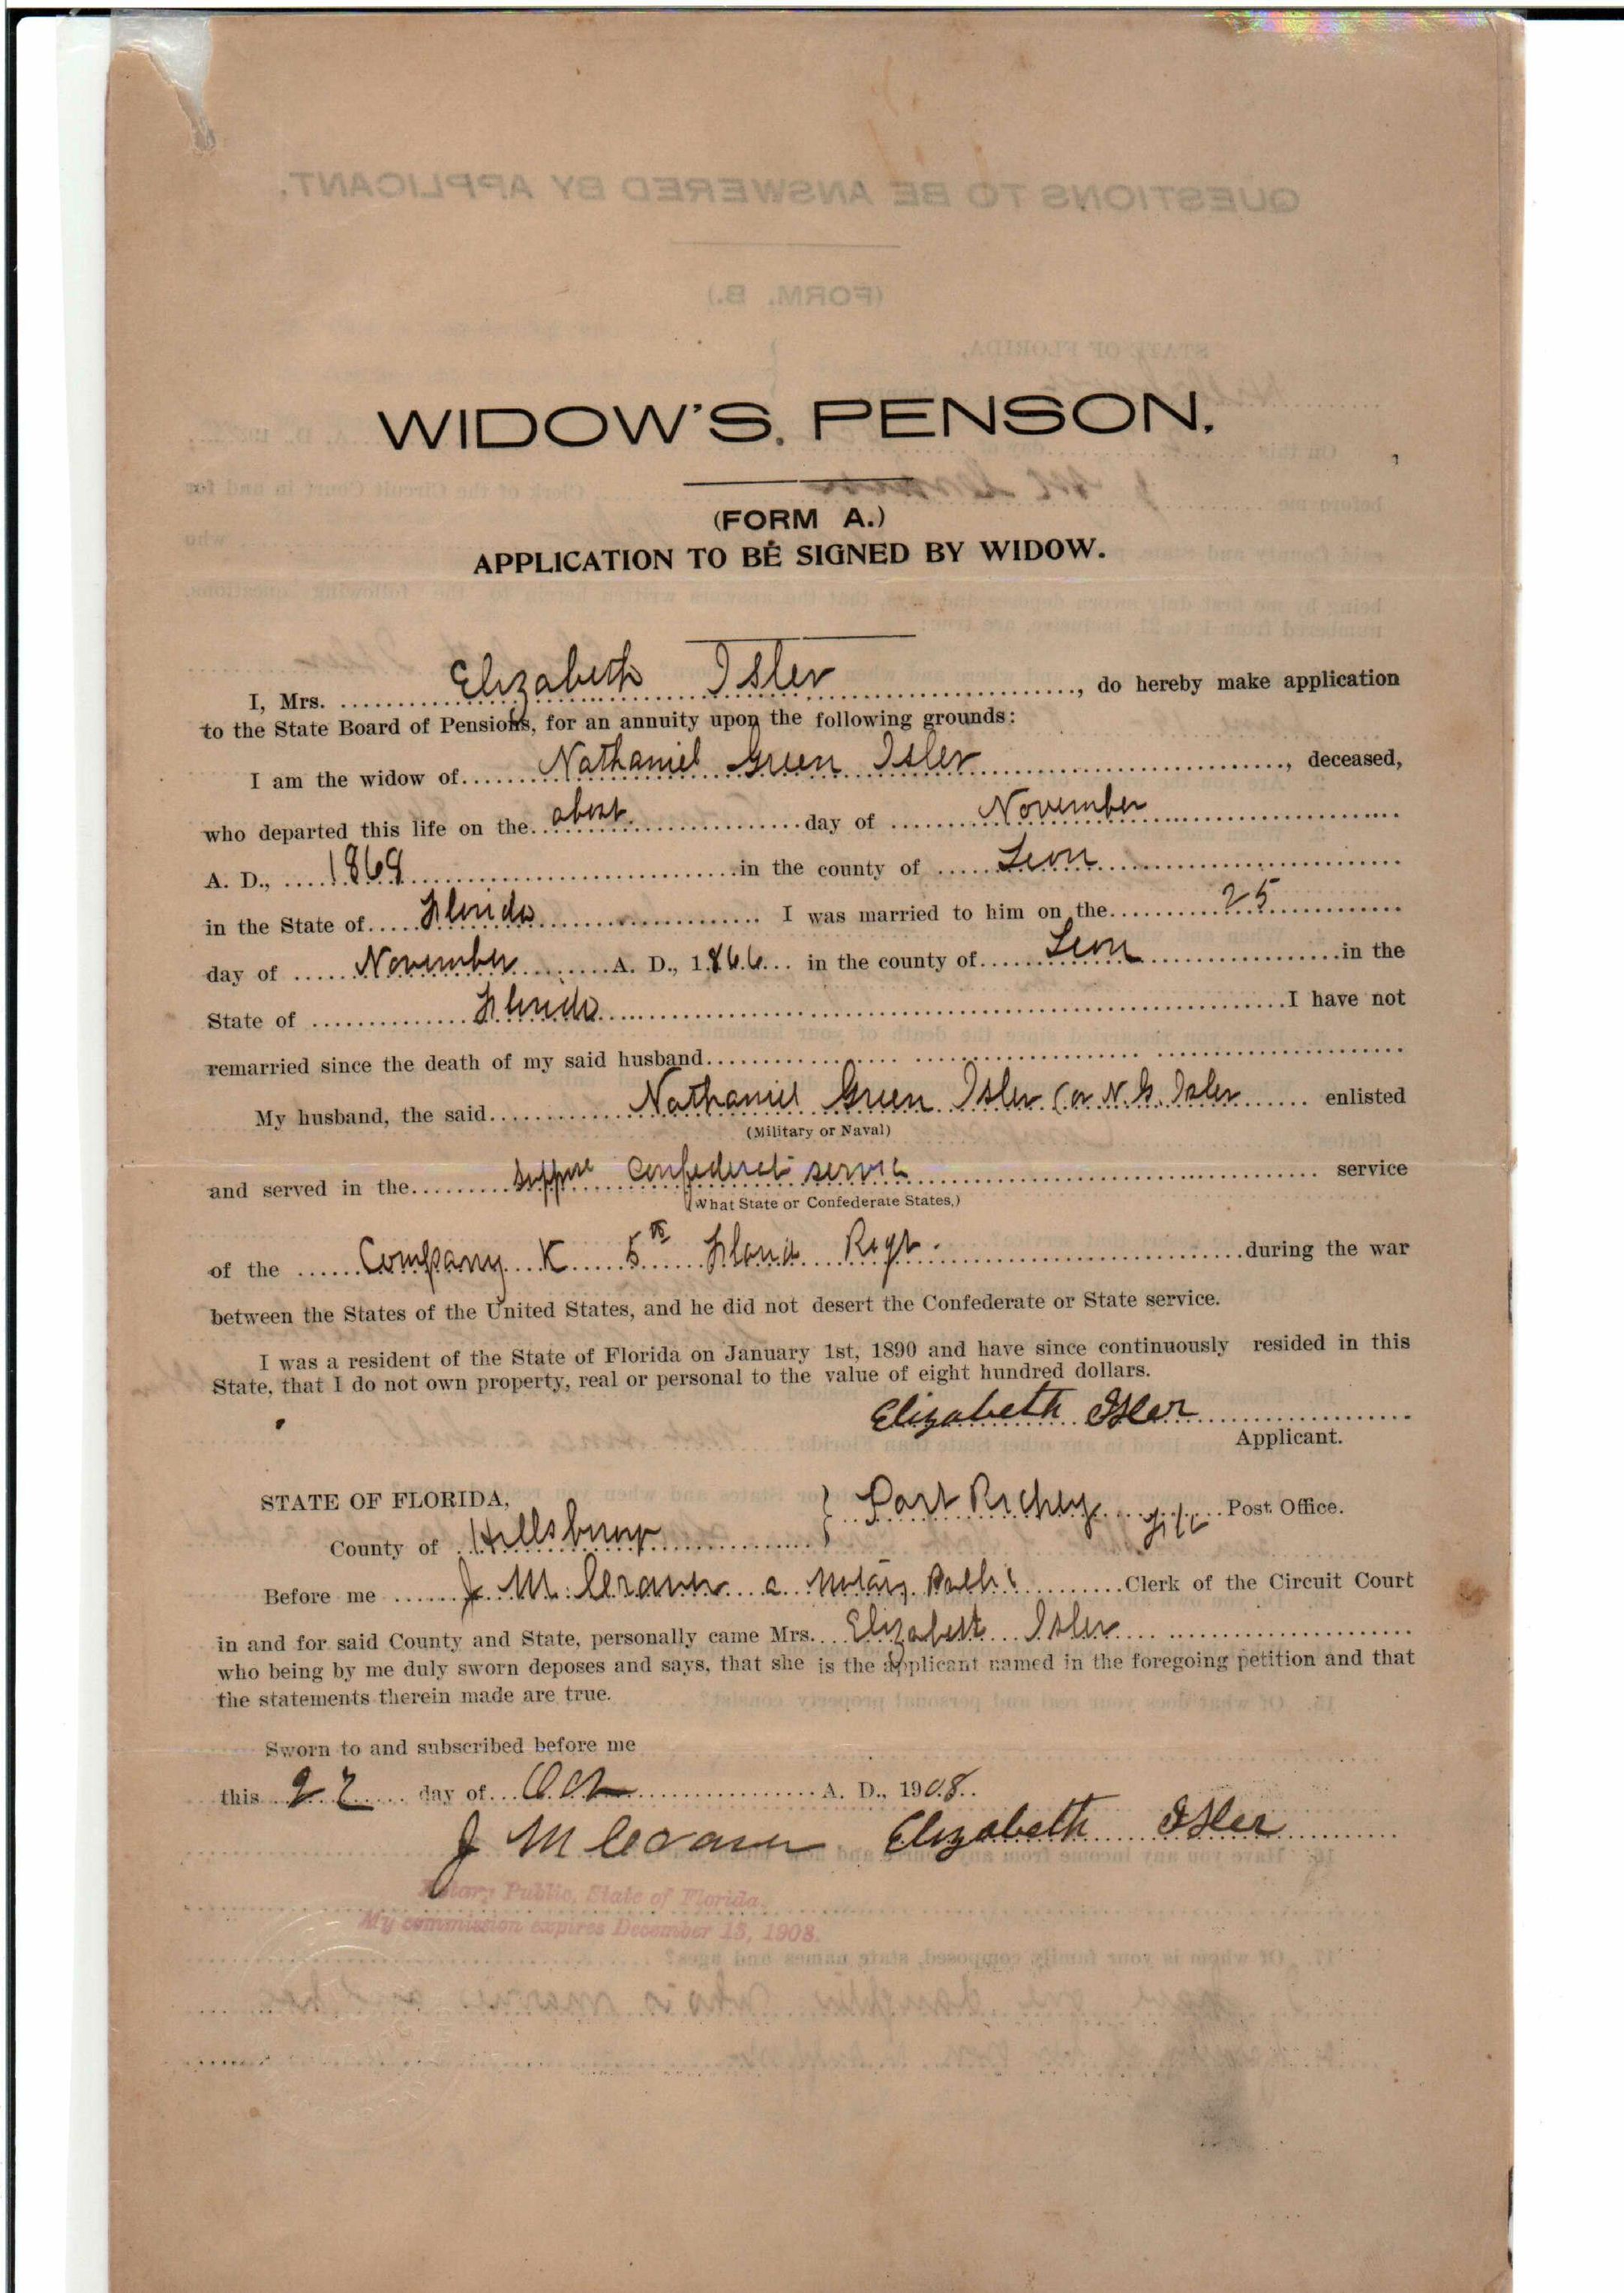 WIDOW'S. PENSON.
(FORM A.)
APPLICATION TO BE SIGNED BY WIDOW.
I, Mrs. Elizabeth Isler, do hereby make application
to the State Board of Pensions, for an annuity upon the following grounds:
I am the widow of Nathaniel Green Isler, deceased,
who departed this life on the about day of November
A. D., 1869 in the county of Leon
in the State of Florida I was married to him on the 25
day of November A. D., 1866 in the county of Leon in the
State of Florida I have not
remarried since the death of my said husband
My husband, the said Nathaniel Green Isler (or N. G. Isler enlisted
(Military or Naval)
and served in the suppose Confederate service service
(What State or Confederate States.)
of the Company K 5th Florida Regt. during the war
between the States of the United States, and he did not desert the Confederate or State service.
I was a resident of the State of Florida on January 1st, 1890 and have since continuously resided in this
State, that I do not own property, real or personal to the value of eight hundred dollars.
Elizabeth Isler
Applicant.
STATE OF FLORIDA,
Port Richey Post Office.
County of Hillsboro
Before me J. M. a Notary Public Clerk of the Circuit Court
in and for said County and State, personally came Mrs. Elizabeth Isler
who being by me duly sworn deposes and says, that she is the applicant named in the foregoing petition and that
the statements therein made are true.
Sworn to and subscribed before me
this 22 day of Oct A. D., 1908.
J M Elizabeth Isler
Notary Public, State of Florida.
My commission expires December 15, 1908.